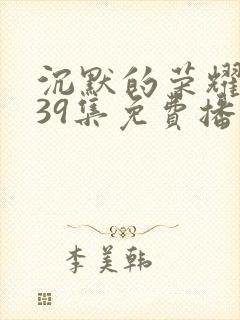 沉默的荣耀
39集免费播
李美韩